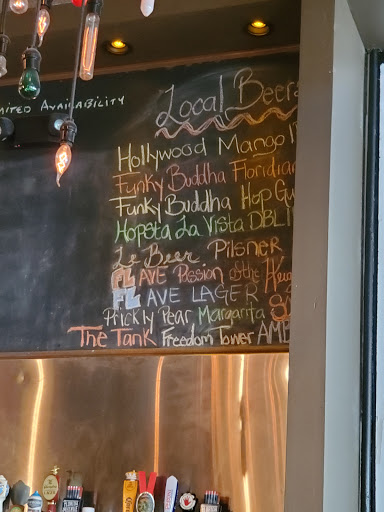 AVAILABILITY
Local Beers
Hollywood Mango
Funky Buddha Floridian
Funky Buddha Hop Gu
Hopsta La Vista DBL I
Le Beer Pilsner
FL AVE Passion of the
FL AVE LAGER
Prickly Pear Margarita
The Tank Freedom Tower AMB